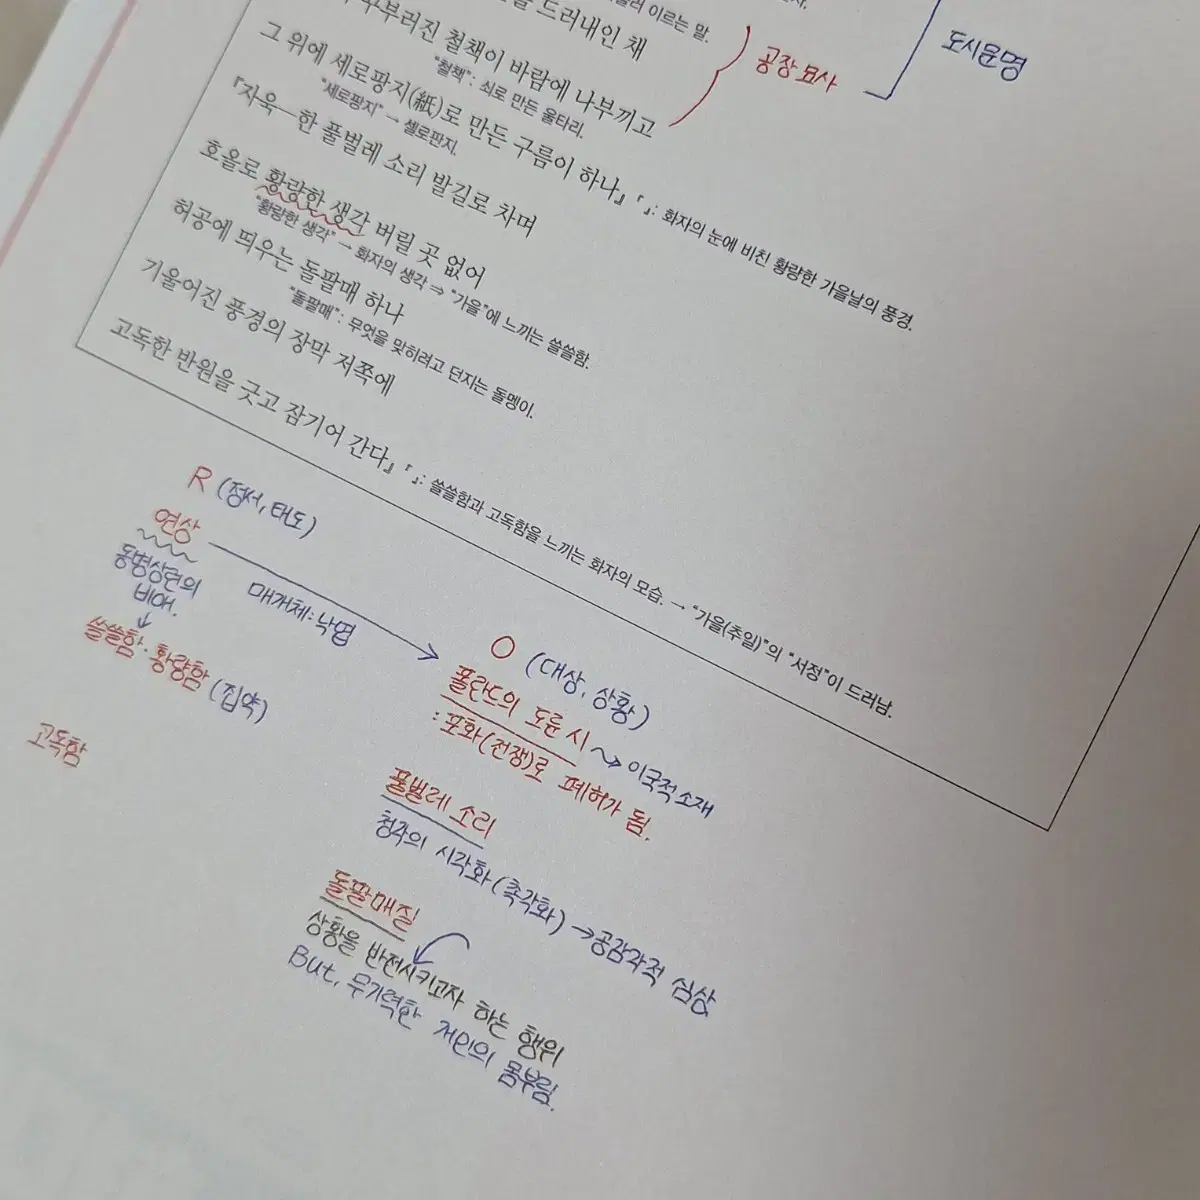 이르는 말.
드러내인 채
철책이 바람에 나부끼고
"철책": 쇠로 만든 울타리.
그 위에 세로팡지(紙)로 만든 구름이 하나』『 』: 화자의 눈에 비친 황량한 가을날의 풍경.
"세로팡지" → 셀로판지.
『자욱―한 풀벌레 소리 발길로 차며
호올로 황량한 생각 버릴 곳 없어
"황량한 생각" → 화자의 생각 ⇒ "가을"에 느끼는 쓸쓸함.
허공에 띄우는 돌팔매 하나
"돌팔매": 무엇을 맞히려고 던지는 돌멩이.
기울어진 풍경의 장막 저쪽에
고독한 반원을 긋고 잠기어 간다』『 』: 쓸쓸함과 고독함을 느끼는 화자의 모습. → "가을(추일)"의 "서정"이 드러남.
공장 묘사
도시문명
R (정서, 태도)
연상
동병상련의
비애.
↓
쓸쓸함·황량함 (집약)
고독함
매개체: 낙엽
O (대상, 상황)
폴란드의 도룬 시 → 이국적 소재
: 포화(전쟁)로 폐허가 됨.
풀벌레 소리
청각의 시각화(촉각화) → 공감각적 심상
돌팔매질
상황을 반전시키고자 하는 행위
But, 무기력한 개인의 몸부림.